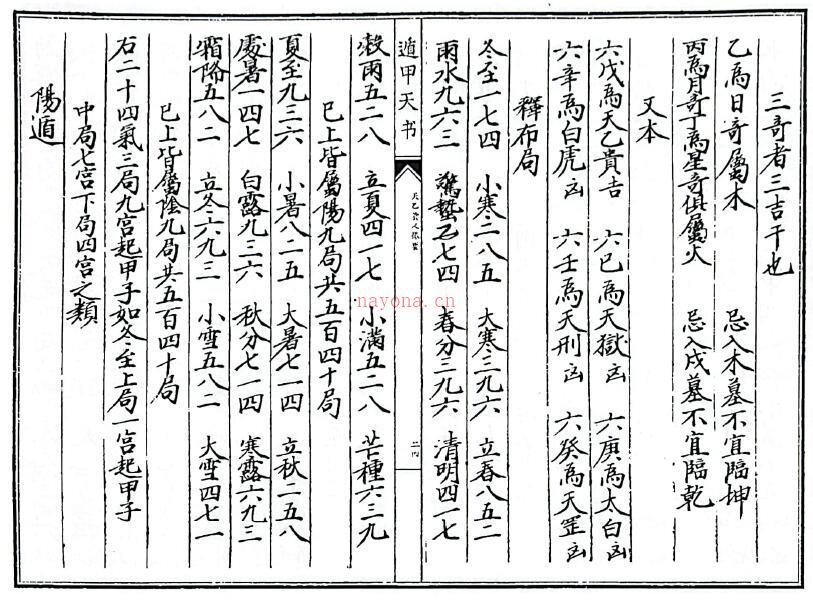 三竒者三吉干也
乙為日竒屬木 忌入木墓不宜臨坤
丙為月竒丁為星竒俱屬火 忌入戌墓不宜臨乾
又本
六戊為天乙貴吉 六巳為天獄凶 六庚為太白凶
六辛為白虎凶 六壬為天刑凶 六癸為天罡凶
釋布局
冬至一七四 小寒二八五 大寒三九六 立春八五二
雨水九六三 驚蟄乙七四 春分三九六 清明四一七
遁甲天书
二四
nayona.cn
穀雨五二八 立夏四一七 小滿五二八 芒種六三九
巳上皆屬陽九局共五百四十局
夏至九三六 小暑八二五 大暑七一四 立秋二五八
處暑一四七 白露九三六 秋分七一四 寒露六九三
霜降五八二 立冬六九三 小雪五八二 大雪四七一
巳上皆屬陰九局共五百四十局
右二十四氣三局九宮起甲子如冬至上局一宮起甲子
中局七宮下局四宮之類
陽遁